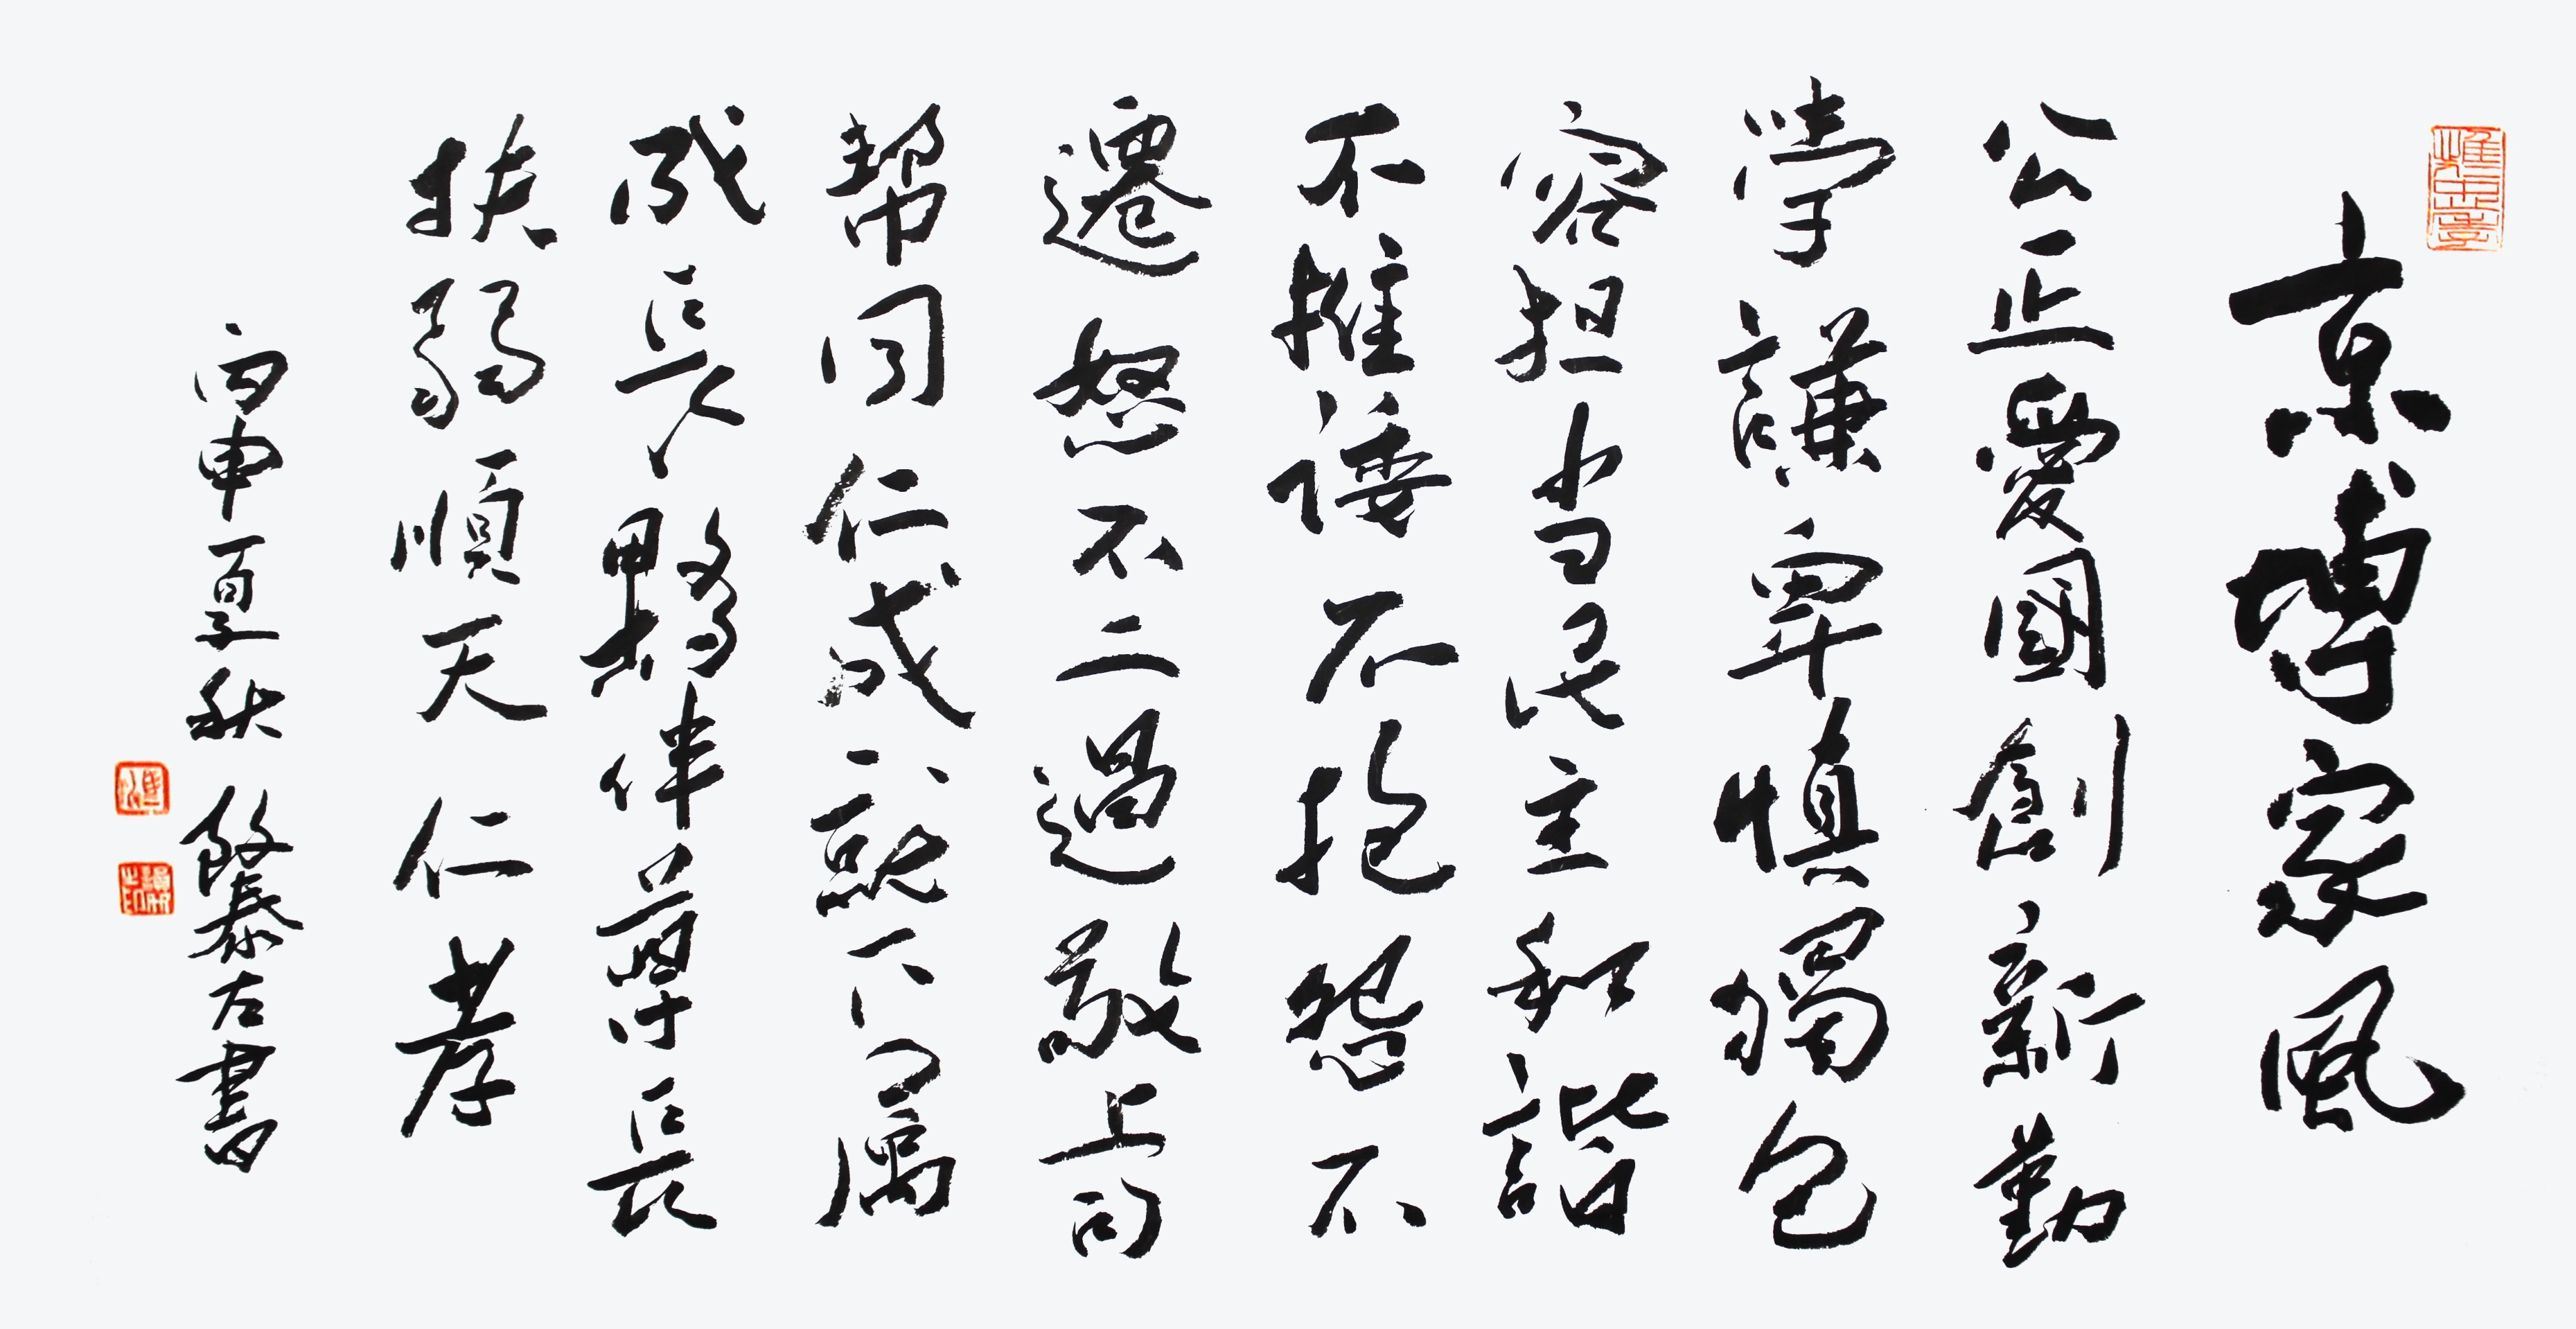 京博家風
公正愛國創新勤
學謙卑慎獨包
容担当民主和諧
不推諉不抱怨不
遷怒不二過敬上司
幫同仁成就下屬
成長夥伴尊長
扶弱順天仁孝
丙申夏秋 泰左書